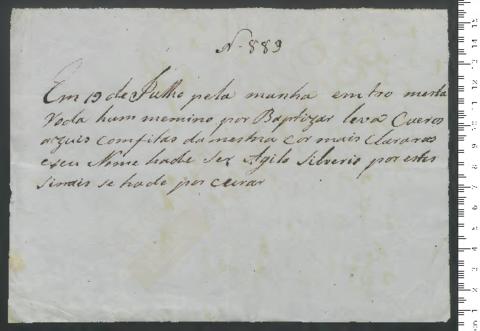 N. 883
Em 19 de Julho pela manha emtro nesta
Roda hum menino por Baptizar leva Cueros
azuis com fitas da mesma cor mais Claras
e seu Nome hade Ser Agilo Silverio por estes
Sinais se hade por curar